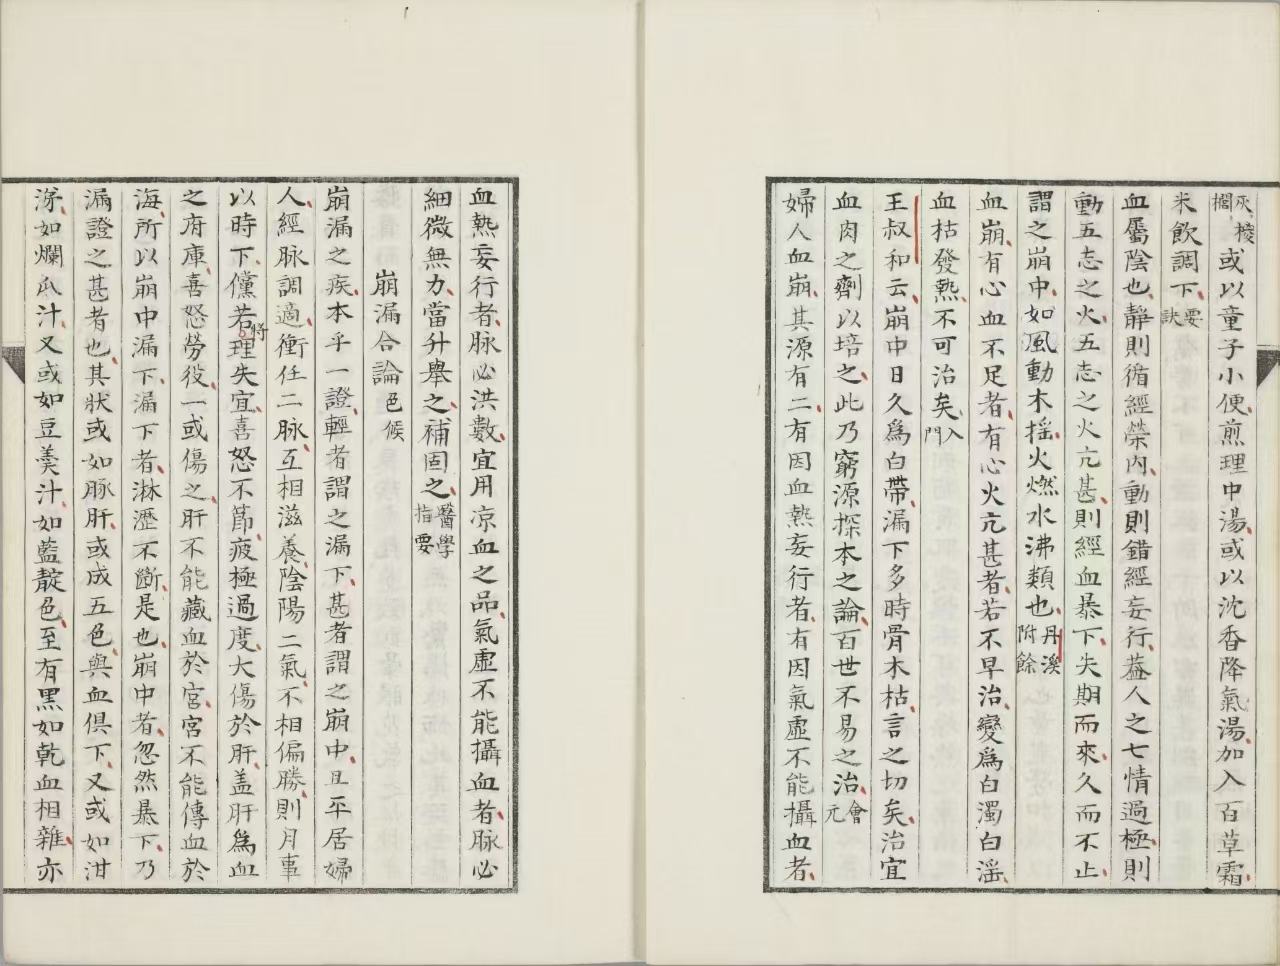 灰棕櫚或以童子小便煎理中湯或以沈香降氣湯加入百草霜
米飲調下要訣
血屬陰也靜則循經榮内動則錯經妄行蓋人之七情過極則
動五志之火五志之火亢甚則經血暴下失期而來久而不止
謂之崩中如風動木搖火燃水沸類也丹溪附餘
血崩有心血不足者有心火亢甚者若不早治變為白濁白淫
血枯發熱不可治矣入門
王叔和云崩中日久為白帶漏下多時骨木枯言之切矣治宜
血肉之劑以培之此乃窮源探本之論百世不易之治會元
婦人血崩其源有二有因血熱妄行者有因氣虛不能攝血者
血熱妄行者脉必洪數宜用凉血之品氣虛不能攝血者脉必
細微無力當升舉之補固之醫學指要
崩漏合論色候
崩漏之疾本乎一證輕者謂之漏下甚者謂之崩中且平居婦
人經脉調適衝任二脉互相滋養陰陽二氣不相偏勝則月事
以時下儻若將理失宜喜怒不節疲極過度大傷於肝盖肝為血
之府庫喜怒勞役一或傷之肝不能藏血於宮宮不能傳血於
海所以崩中漏下漏下者淋瀝不斷是也崩中者忽然暴下乃
漏證之甚者也其狀或如豚肝或成五色與血俱下又或如泔
涕如爛瓜汁又或如豆羹汁如藍靛色至有黑如乾血相雜亦